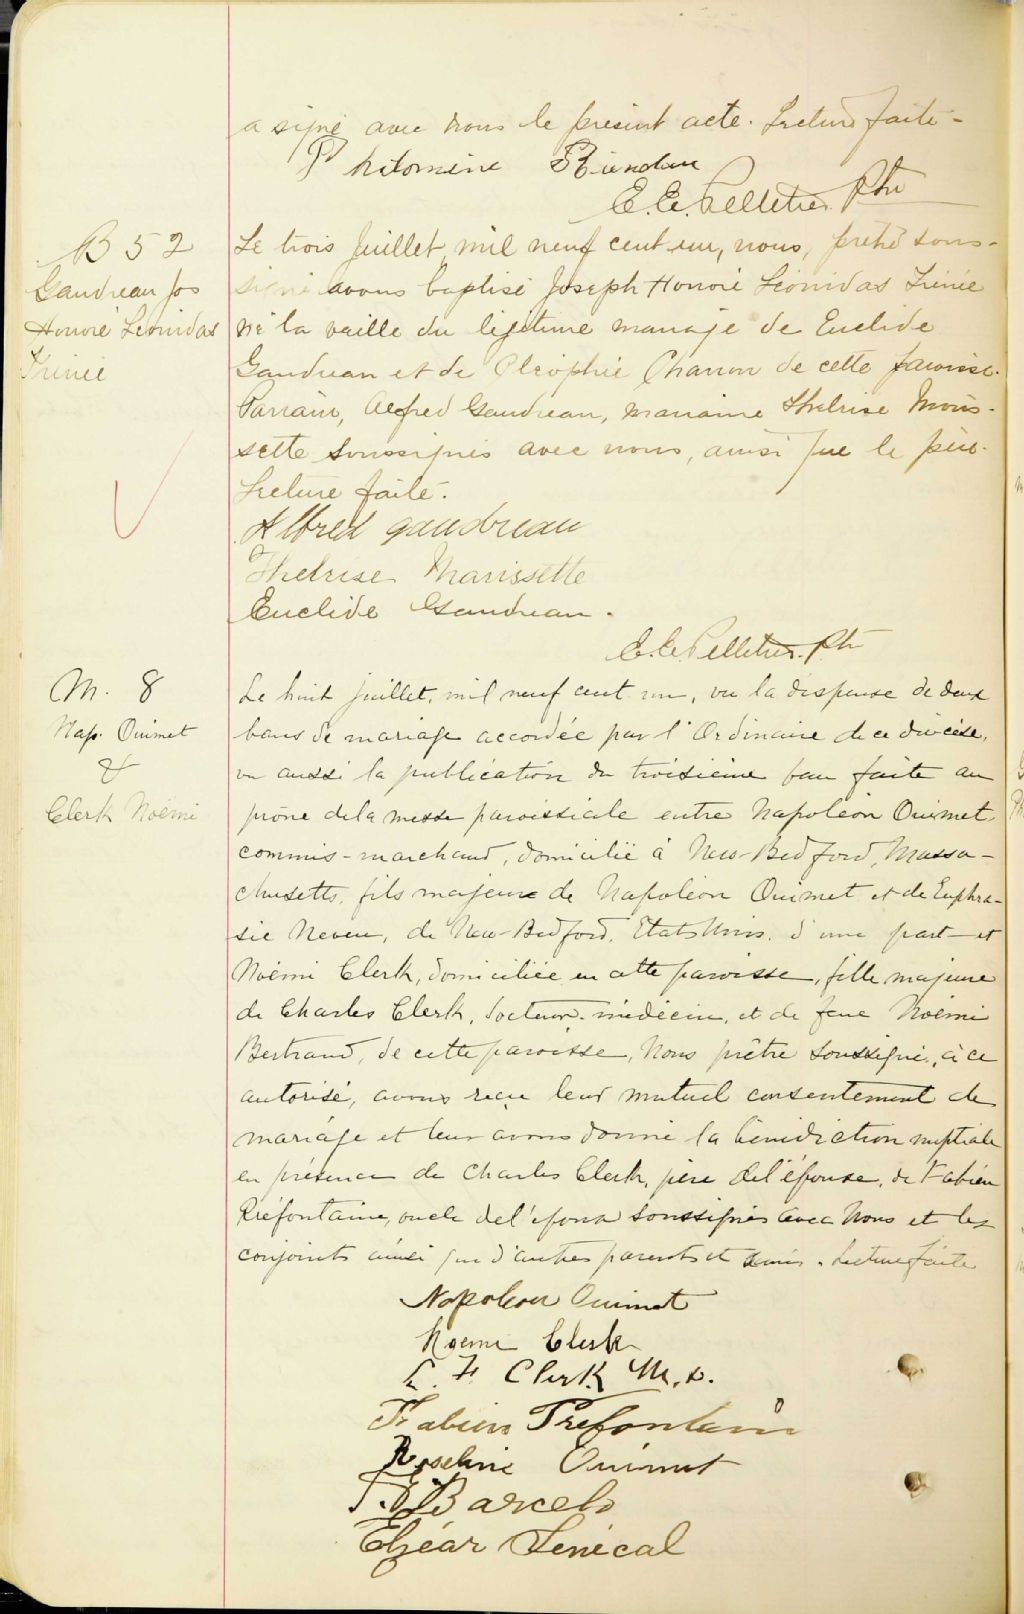 a signé avec nous le présent acte. Lecture faite -
Philomène Riendeau
E. E. Pelletier Ptre
B 52
Gaudreau Jos
Honoré Léonidas
Irénée
Le trois Juillet mil neuf cent un, nous, prêtre sous-
signé avons baptisé Joseph Honoré Léonidas Irénée
né la veille du légitime mariage de Euclide
Gaudreau et de Cléophée Charron de cette paroisse.
Parrain, Alfred Gaudreau, marraine Thebrise
sette soussignés avec nous, ainsi que le père.
Lecture faite.
Alfred gaudreau
Thebrise Marissette
Euclide Gaudreau.
E. E. Pelletier. Ptr
M. 8
Nap. Ouimet
&
Clerk Noémi
Le huit juillet, mil neuf cent un, vu la dispense de deux
bans de mariage accordée par l'Ordinaire de ce diocèse,
vu aussi la publication du troisième ban faite au
prône de la messe paroissiale entre Napoléon Ouimet,
commis-marchand, domicilié à New-Bedford, Massa-
chusetts, fils majeur de Napoléon Ouimet et de Euphra-
sie Neveu, de New-Bedford, Etats Unis, d'une part et
Noémi Clerk, domiciliée en cette paroisse, fille majeure
de Charles Clerk, docteur-médecin, et de feue Noémi
Bertrand, de cette paroisse, Nous prêtre soussigné, à ce
autorisé, avons reçu leur mutuel consentement de
mariage et leur avons donné la bénédiction nuptiale
en présence de Charles Clerk, père de l'épouse, de Fabien
Préfontaine, oncle de l'épouse soussignés avec Nous et les
conjoints ainsi que d'autres parents et amis. Lecture faite
Napoleon Ouimet
Noemi Clerk
F. Clerk M.D.
Fabien Prefontaine
Roseline Ouimet
Barcelo
Elzéar Sénécal